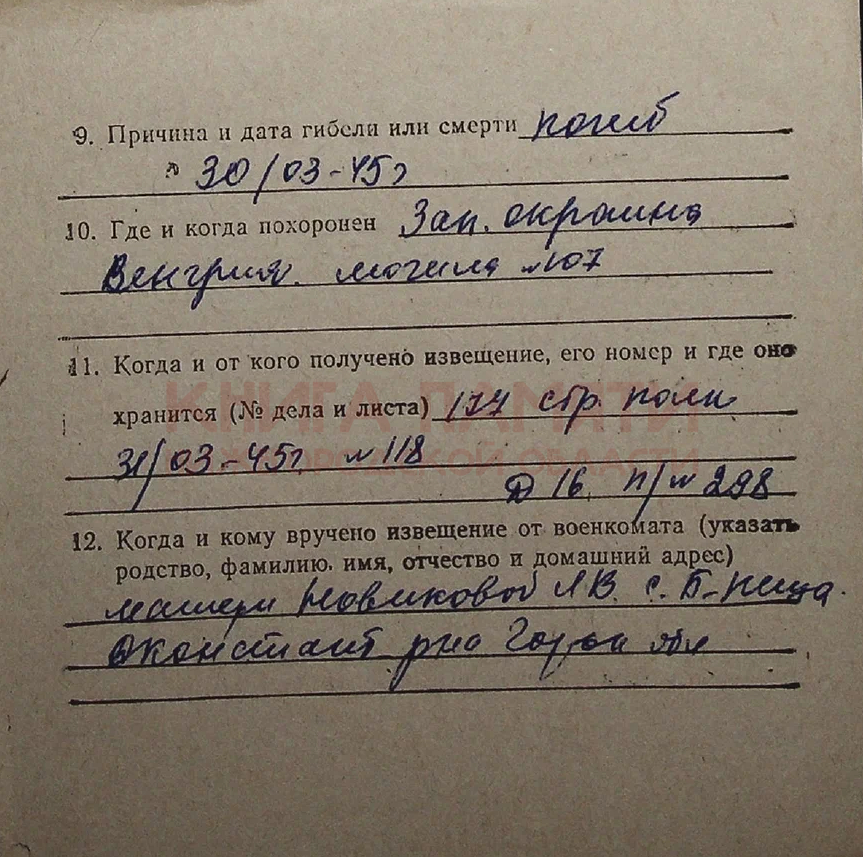 9. Причина и дата гибели или смерти погиб
30/03-45г
10. Где и когда похоронен Зап. окраина
Венгрия. могила №107
11. Когда и от кого получено извещение, его номер и где оно
КНИГА ПАМЯТИ
хранится (№ дела и листа) 174 стр. полк
31/03-45г №118
ОБЛАСТИ
Д 16 п/№ 298
12. Когда и кому вручено извещение от военкомата (указать
родство, фамилию, имя, отчество и домашний адрес)
матери Новиковой В. с. Б-Пица.
Дконстант рна Горьк обл